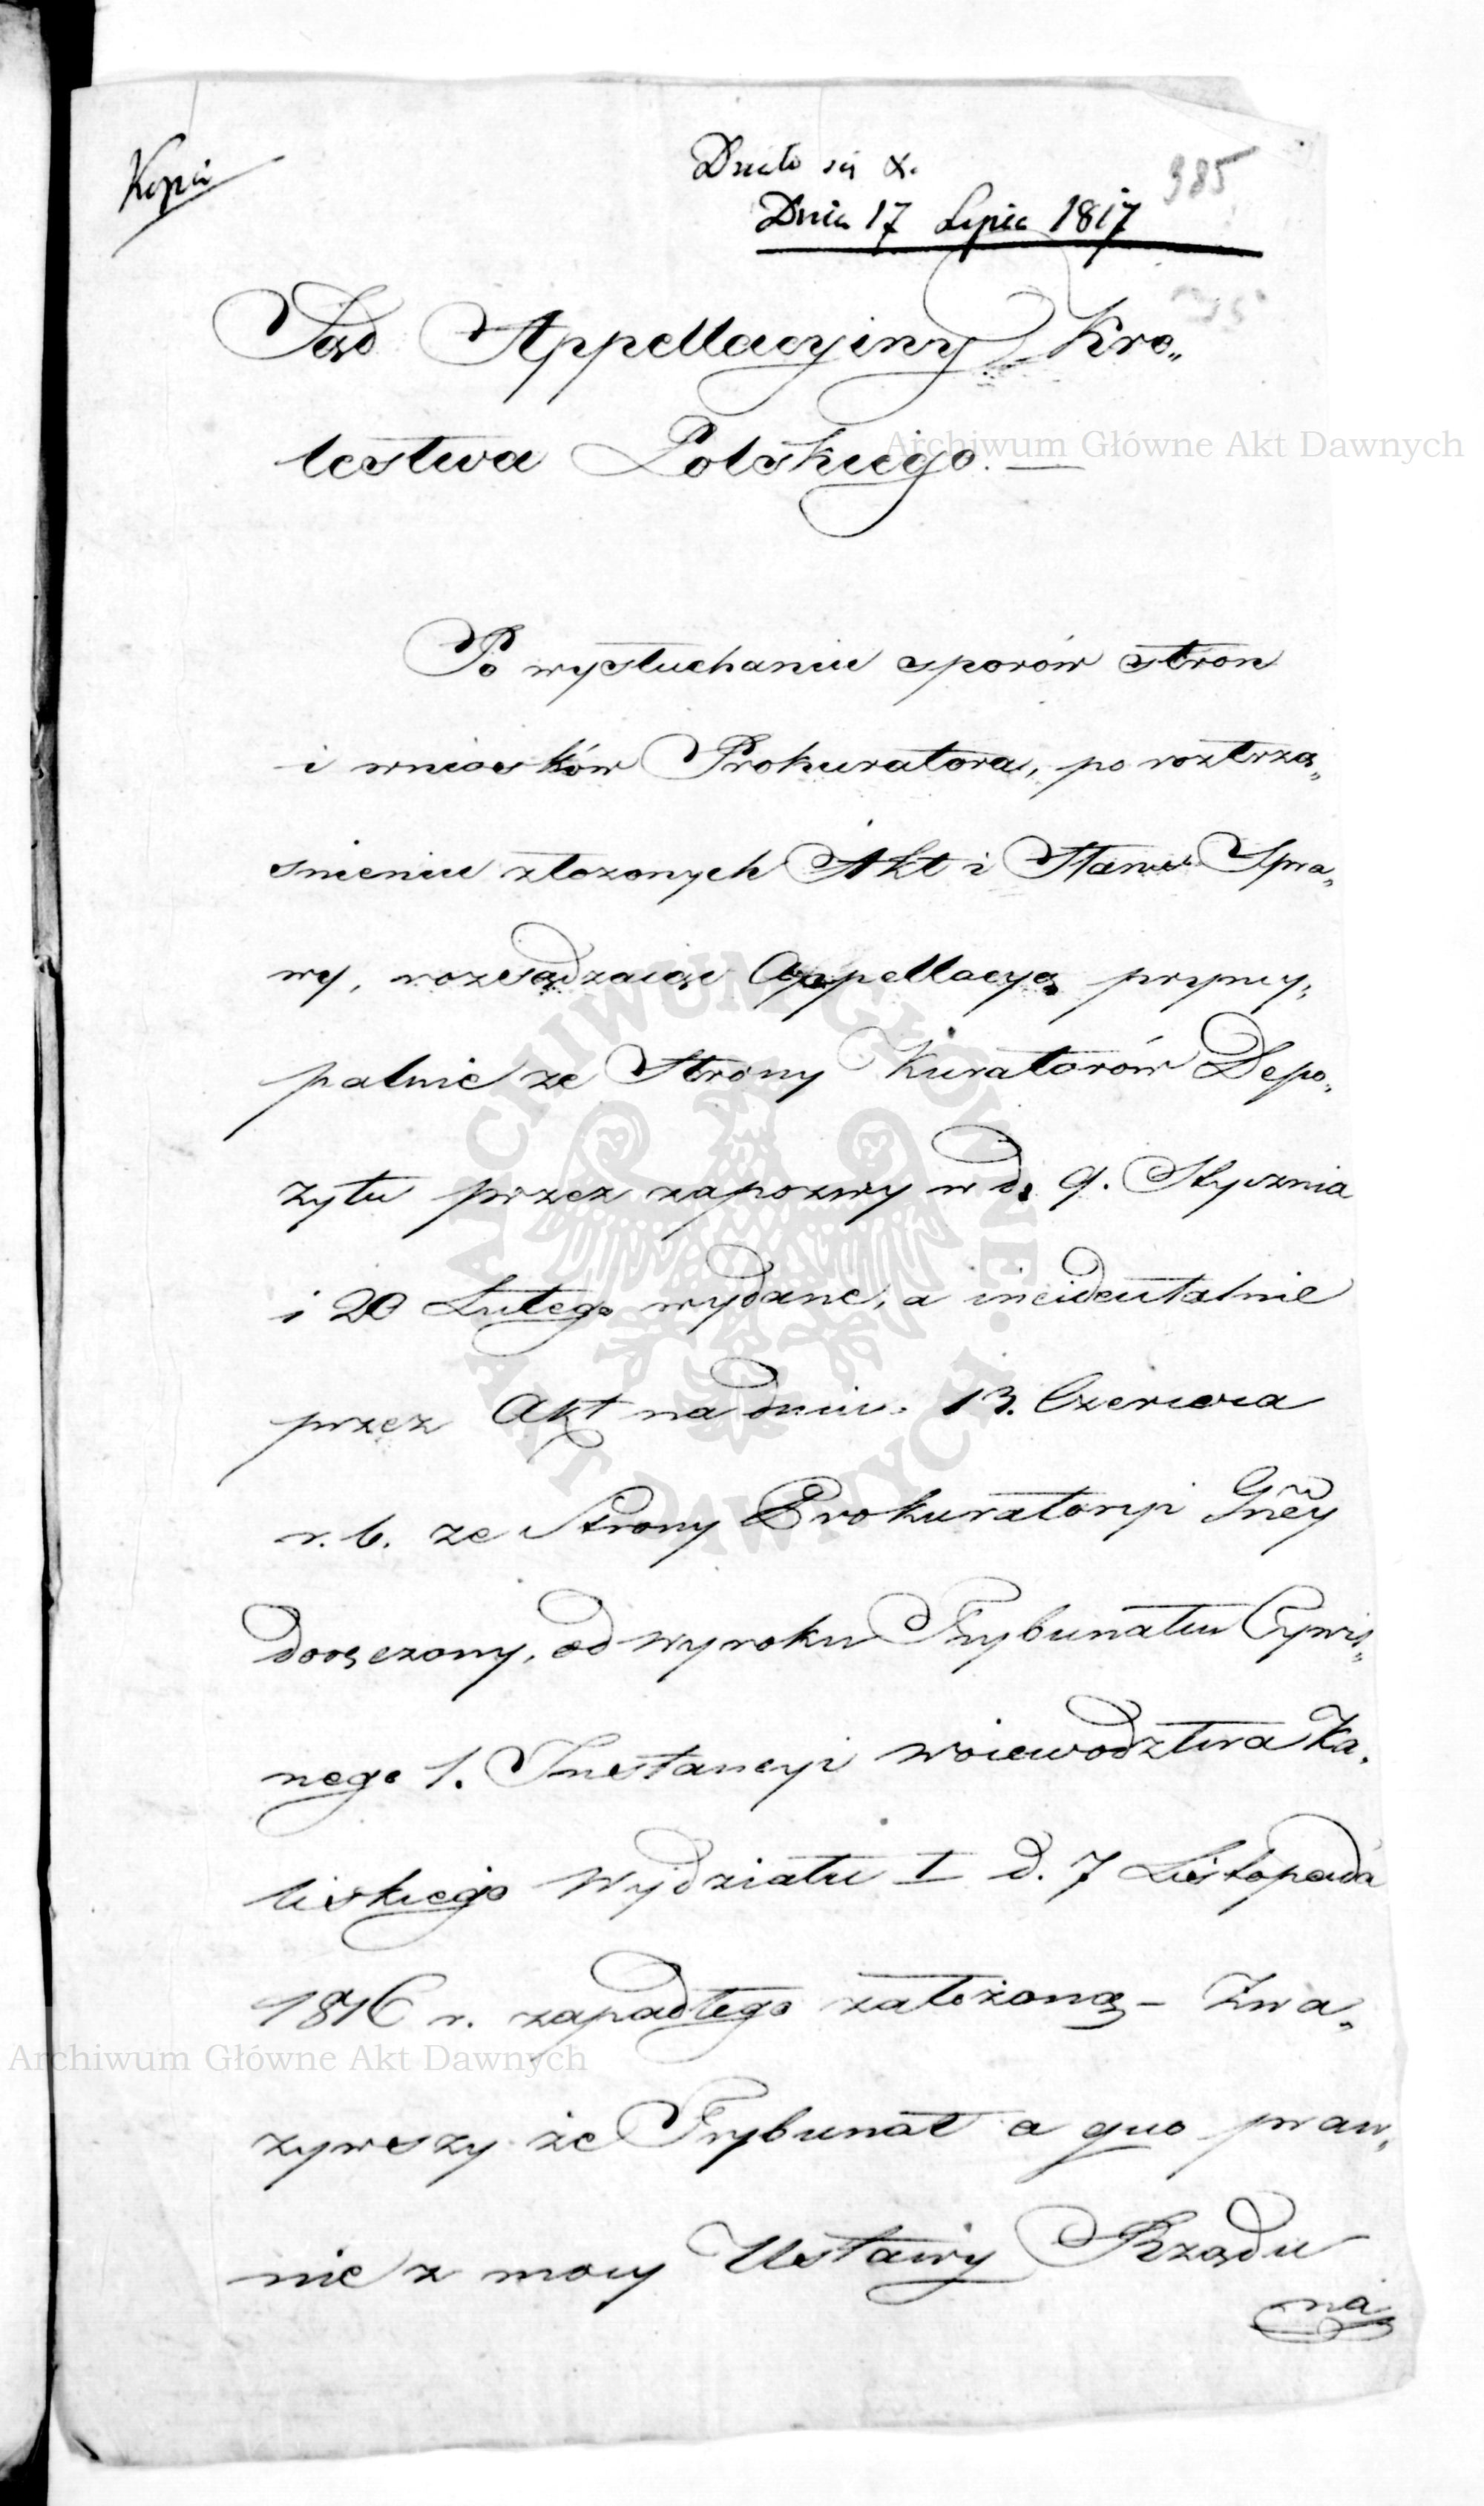 Kopia
Działo się x.
Dnia 17 Lipca 1817
985
Sąd Appellacyjiny Kró„
lestwa Polskiego. —
Po wysłuchaniu sporów stron
i wniosków Prokuratora, po roztrzą„
śnieniu złożonych Akt i Stanu Spra„
wy, rozsądzaiąc Appellacyą pryncy„
palnie ze Strony Kuratorów Depo„
zytu przez zapozwy w d. 9. Stycznia
i 20 Lutego wydane, a incidentalnie
przez Akt na dniu 13. Czerwca
r. b. ze Strony Prokuratoryi Gney
doręczony, od wyroku Trybunału Cywil„
nego 1. Instancyi Woiewodztwa Ka„
liskiego Wydziału I d. 7 Listopada
1816 r. zapadłego założoną – Zwa„
żywszy że Trybunał a quo praw„
nie z mocy Ustawy Rządu
na
Archiwum Główne Akt Dawnych
ARCHIWUM GŁÓWNE AKT DAWNYCH
Archiwum Główne Akt Dawnych